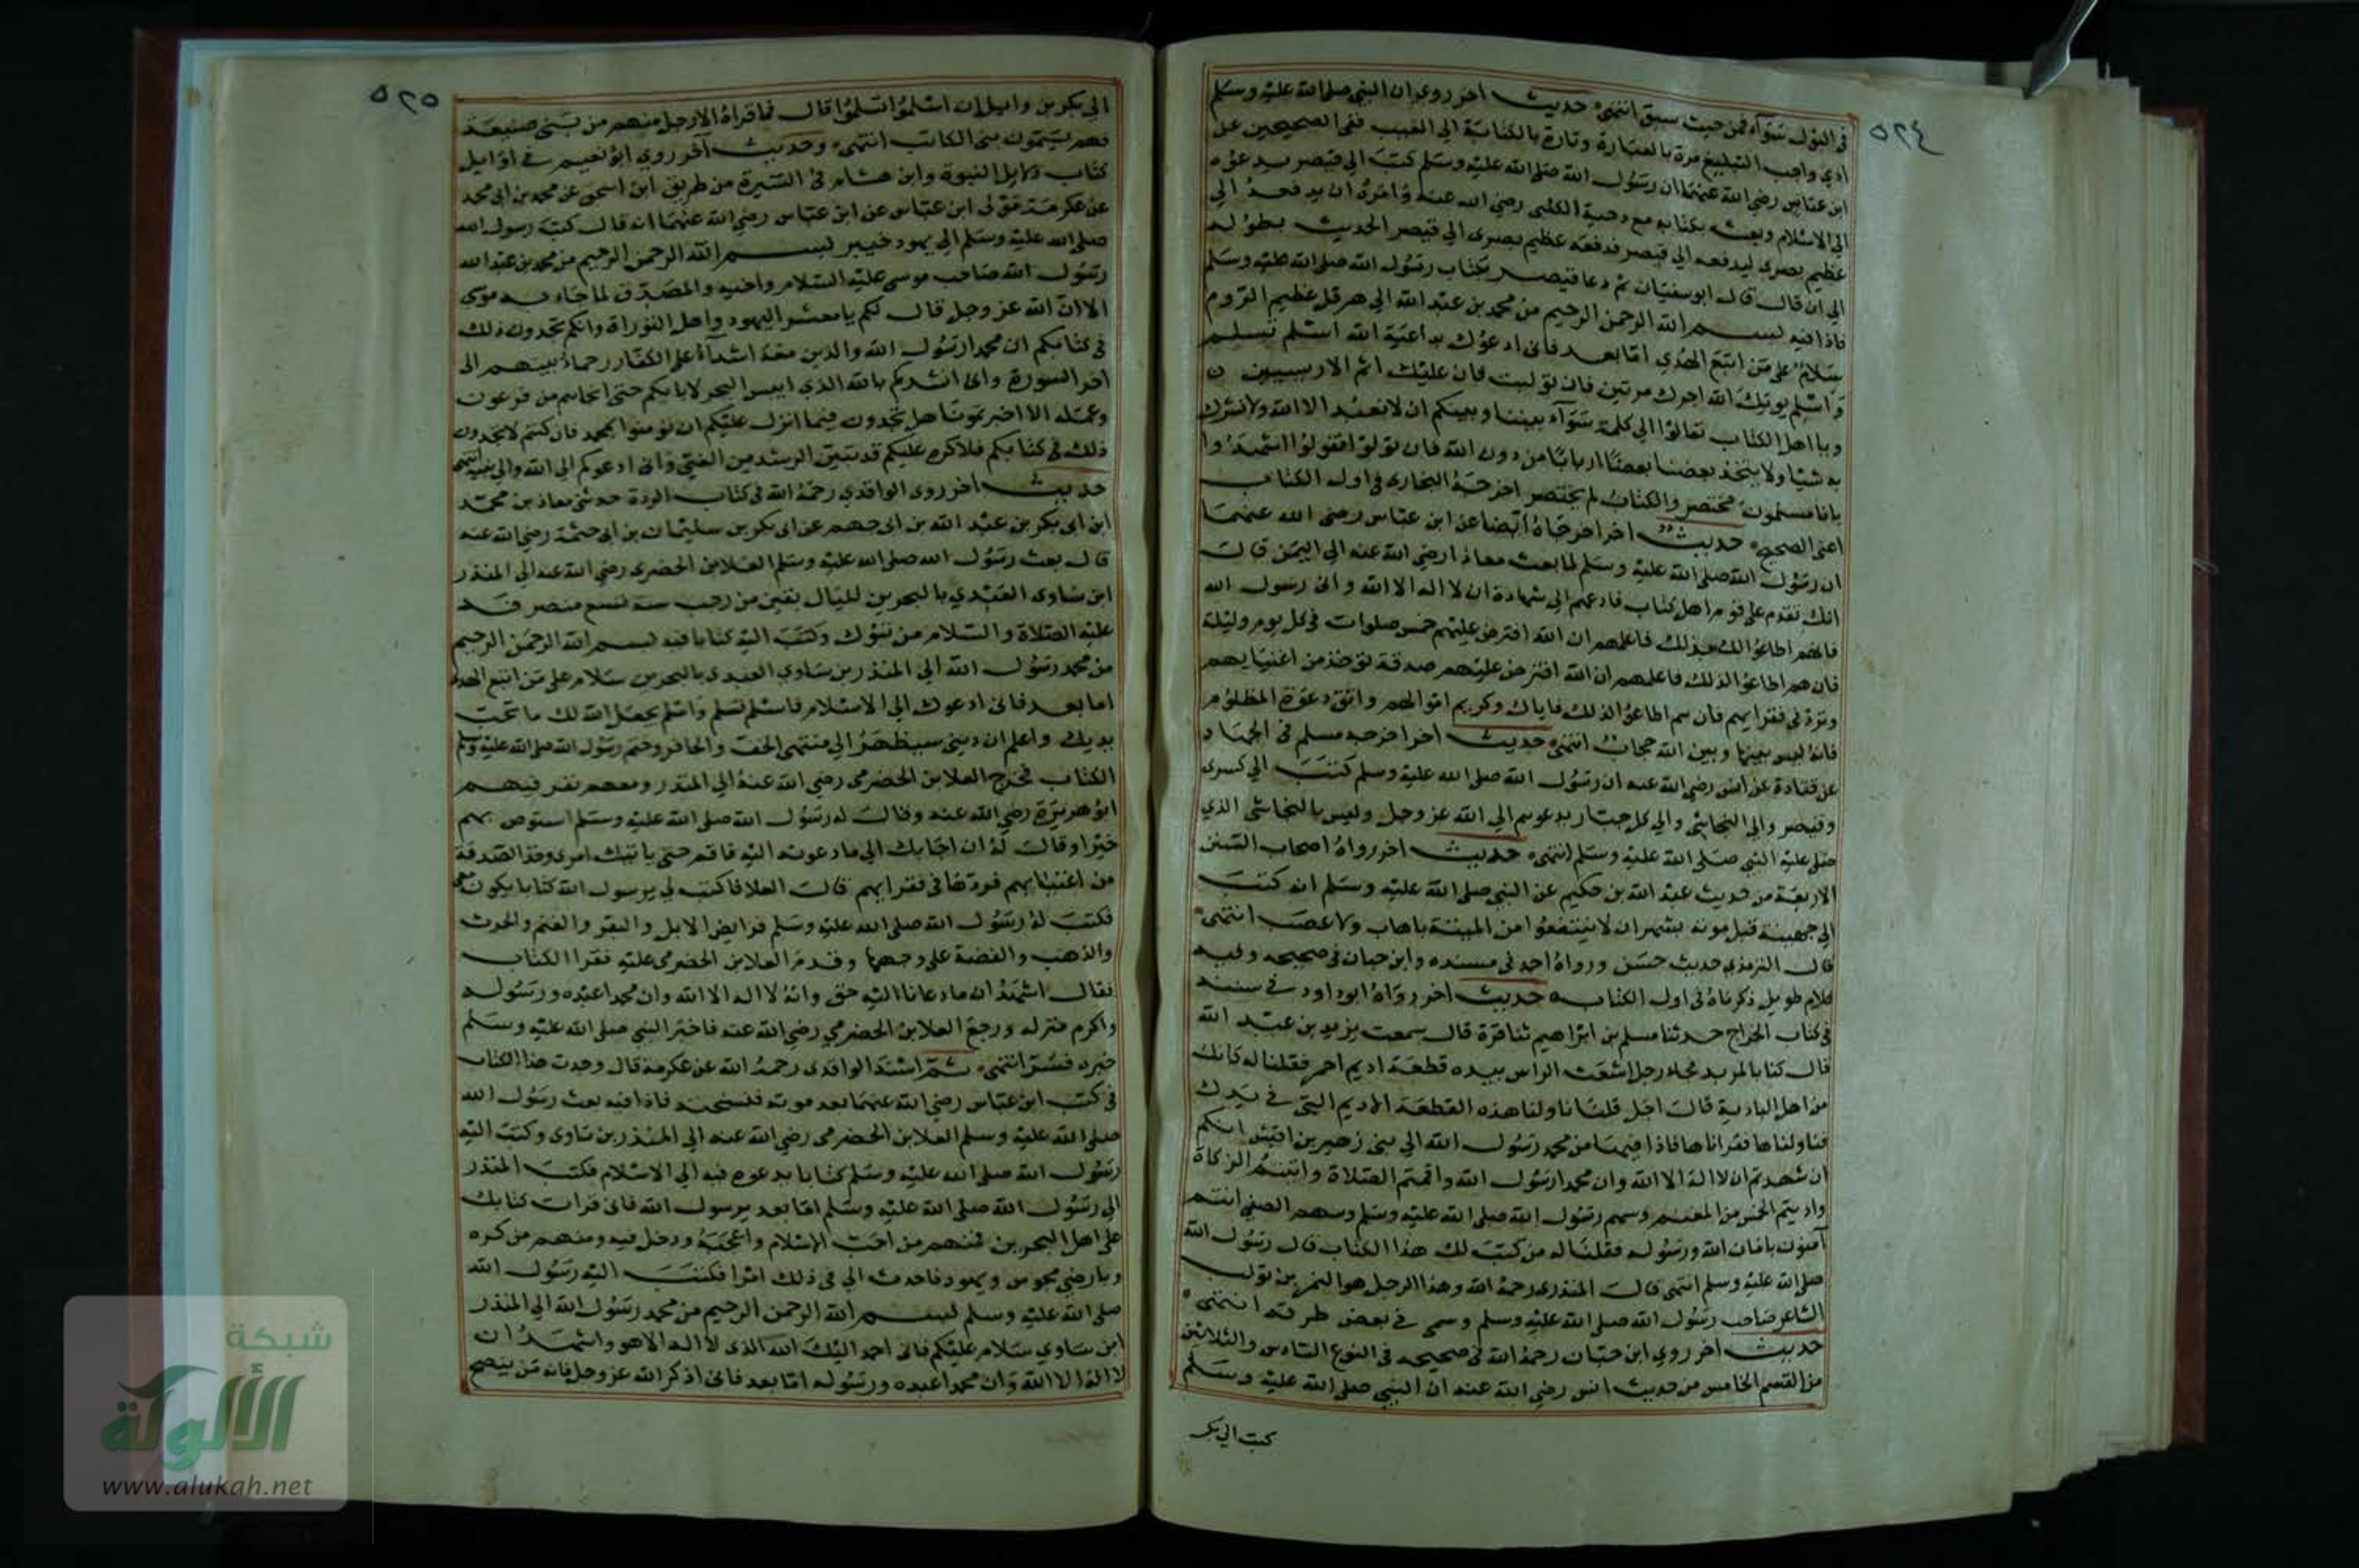 ٥٢٤
في البول سواء فمن حيث سبق انتهى حديث اخر روي ان النبي صلى الله عليه وسلم
ادى واجب التبليغ مرة بالعبارة وتارة بالكتابة الى الغيب ففي الصحيحين عن
ابن عباس رضي الله عنهما ان رسول الله صلى الله عليه وسلم كتب الى قيصر يدعوه
الى الاسلام وبعث بكتابه مع دحية الكلبي رضي الله عنه وامره ان يدفعه الى
عظيم بصرى ليدفعه الى قيصر فدفعه عظيم بصرى الى قيصر الحديث بطوله
الى ان قال قال ابو سفيان ثم دعا قيصر بكتاب رسول الله صلى الله عليه وسلم
فاذا فيه بسم الله الرحمن الرحيم من محمد بن عبد الله الى هرقل عظيم الروم
سلام على من اتبع الهدى اما بعد فانى ادعوك بداعية الله اسلم تسلم
واسلم يوتك الله اجرك مرتين فان توليت فان عليك اثم الاريسيين
ويا اهل الكتاب تعالوا الى كلمة سواء بيننا وبينكم ان لا نعبد الا الله ولا نشرك
به شيا ولا يتخذ بعضنا بعضا اربابا من دون الله فان تولوا فقولوا اشهدوا
بانا مسلمون مختصر والكتاب لم يختصر اخرجه البخارى فى اول الكتاب
اعنى الصحيح حديث اخر اخرجاه ايضا عن ابن عباس رضى الله عنهما
ان رسول الله صلى الله عليه وسلم لما بعث معاذا رضي الله عنه الى اليمن قال
انك تقدم على قوم اهل كتاب فادعهم الى شهادة ان لا اله الا الله وانى رسول الله
فانهم اطاعوا لك بذلك فاعلمهم ان الله افترض عليهم خمس صلوات فى كل يوم وليلة
فان هم اطاعوا لذلك فاعلمهم ان الله افترض عليهم صدقة توخذ من اغنيايهم
وترد فى فقرايهم فان هم اطاعوا لذلك فاياك وكريم اموالهم واتق دعوة المظلوم
فانه ليس بينها وبين الله حجاب انتهى حديث اخر اخرجه مسلم فى الجهاد
عن قتادة عن انس رضي الله عنه ان رسول الله صلى الله عليه وسلم كتب الى كسرى
وقيصر والى النجاشى والى كل جبار يدعوهم الى الله عز وجل وليس بالنجاشى الذي
صلى عليه النبي صلى الله عليه وسلم انتهى حديث اخر رواه اصحاب السنن
الاربعة من حديث عبد الله بن حكيم عن النبي صلى الله عليه وسلم انه كتب
الى جهينة قبل موته بشهر ان لا ينتفعوا من الميتة باهاب ولا عصب انتهى
قال الترمذي حديث حسن ورواه احمد فى مسنده وابن حبان فى صحيحه وفيه
كلام طويل ذكرناه فى اول الكتاب حديث اخر رواه ابو داود فى سننه
فى كتاب الخراج حدثنا مسلم بن ابراهيم ثنا قرة قال سمعت يزيد بن عبد الله
قال كنا بالمربد فجاء رجل اشعث الراس بيده قطعة اديم احمر فقلنا له كانك
من اهل البادية قال اجل قلنا ناولنا هذه القطعة الاديم التى فى يدك
فناولناها فقراناها فاذا فيها من محمد رسول الله الى بنى زهير بن اقيش انكم
ان شهدتم ان لا اله الا الله وان محمدا رسول الله واقمتم الصلاة واتيتم الزكاة
واديتم الخمس من المغنم وسهم رسول الله صلى الله عليه وسلم وسهم الصفى انتم
آمنون بامان الله ورسوله فقلنا له من كتب لك هذا الكتاب قال رسول الله
صلى الله عليه وسلم انتهى قال المنذرى رحمه الله وهذا الرجل هو النمر بن تولب
الشاعر صاحب رسول الله صلى الله عليه وسلم وسمى فى بعض طرقه انتهى
حديث اخر روى ابن حبان رحمه الله فى صحيحه فى النوع السادس والثلاثين
من القسم الخامس من حديث انس رضي الله عنه ان النبي صلى الله عليه وسلم
كتب الى بكر
٥٢٥
الى بكر بن وايل ان اسلموا تسلموا قال فما قراه الا رجل منهم من بنى ضبيعة
فهم يسمون بنى الكاتب انتهى وحديث آخر روي ابو نعيم فى اوايل
كتاب دلايل النبوة وابن هشام فى السيرة من طريق ابن اسحق عن محمد بن ابى محمد
عن عكرمة مولى ابن عباس عن ابن عباس رضي الله عنهما انه قال كتب رسول الله
صلى الله عليه وسلم الى يهود خيبر بسم الله الرحمن الرحيم من محمد بن عبد الله
رسول الله صاحب موسى عليه السلام واخيه والمصدق لما جاء به موسى
الا ان الله عز وجل قال لكم يا معشر اليهود واهل التوراة وانكم تجدون ذلك
فى كتابكم ان محمدا رسول الله والذين معه اشداء على الكفار رحماء بينهم الى
اخر السورة وانى انشدكم بالله الذي ايبس البحر لابايكم حتى انجاهم من فرعون
وعمله الا اخبرتمونا هل تجدون فيما انزل عليكم ان تؤمنوا بمحمد فان كنتم لا تجدون
ذلك فى كتابكم فلا كره عليكم قد تبين الرشد من الغي وانى ادعوكم الى الله والى نبيه انتهى
حديث اخر روى الواقدي رحمه الله فى كتاب الردة حدثني معاذ بن محمد
ابن ابى بكر بن عبد الله بن ابى جهم عن ابى بكر بن سليمان بن ابى حثمة رضي الله عنه
قال بعث رسول الله صلى الله عليه وسلم العلا بن الحضرمى رضي الله عنه الى المنذر
ابن ساوى العبدي بالبحرين لليال بقين من رجب سنة تسع منصرفه
عليه الصلاة والسلام من تبوك وكتب اليه كتابا فيه بسم الله الرحمن الرحيم
من محمد رسول الله الى المنذر بن ساوي العبدى بالبحرين سلام على من اتبع الهدى
اما بعد فانى ادعوك الى الاسلام فاسلم تسلم واسلم يجعل الله لك ما تحت
يديك واعلم ان دينى سيظهر الى منتهى الخف والحافر وختم رسول الله صلى الله عليه وسلم
الكتاب فخرج العلا بن الحضرمى رضي الله عنه الى المنذر ومعه نفر فيهم
ابو هريرة رضي الله عنه وقال له رسول الله صلى الله عليه وسلم استوص بهم
خيرا وقال له ان اجابك الى ما دعوته اليه فاقم حتى ياتيك امرى وخذ الصدقة
من اغنيايهم فردها فى فقرايهم قال العلا فاكتب لى يرسول الله كتابا يكون معى
فكتب له رسول الله صلى الله عليه وسلم فرايض الابل والبقر والغنم والحرث
والذهب والفضة على وجهها وقدم العلا بن الحضرمى عليه فقرا الكتاب
فقال اشهد ان ما دعانا اليه حق وانه لا اله الا الله وان محمدا عبده ورسوله
واكرم منزله ورجع العلا بن الحضرمي رضي الله عنه فاخبر النبي صلى الله عليه وسلم
خبره فسر انتهى ثم اسند الواقدى رحمه الله عن عكرمة قال وجدت هذا الكتاب
فى كتب ابن عباس رضي الله عنهما بعد موته فنسخته فاذا فيه بعث رسول الله
صلى الله عليه وسلم العلا بن الحضرمى رضي الله عنه الى المنذر بن ساوى وكتب اليه
رسول الله صلى الله عليه وسلم كتابا يدعوه فيه الى الاسلام فكتب المنذر
الى رسول الله صلى الله عليه وسلم اما بعد يرسول الله فانى قرات كتابك
على اهل البحرين فمنهم من احب الاسلام واعجبه ودخل فيه ومنهم من كره
وبارضى مجوس ويهود فاحدث الى فى ذلك امرا فكتب اليه رسول الله
صلى الله عليه وسلم بسم الله الرحمن الرحيم من محمد رسول الله الى المنذر
ابن ساوي سلام عليكم فانى احمد اليك الله الذى لا اله الا هو واشهد ان
لا اله الا الله وان محمدا عبده ورسوله اما بعد فانى اذكر الله عز وجل فانه من ينصح
شبكة
الألوكة
www.alukah.net